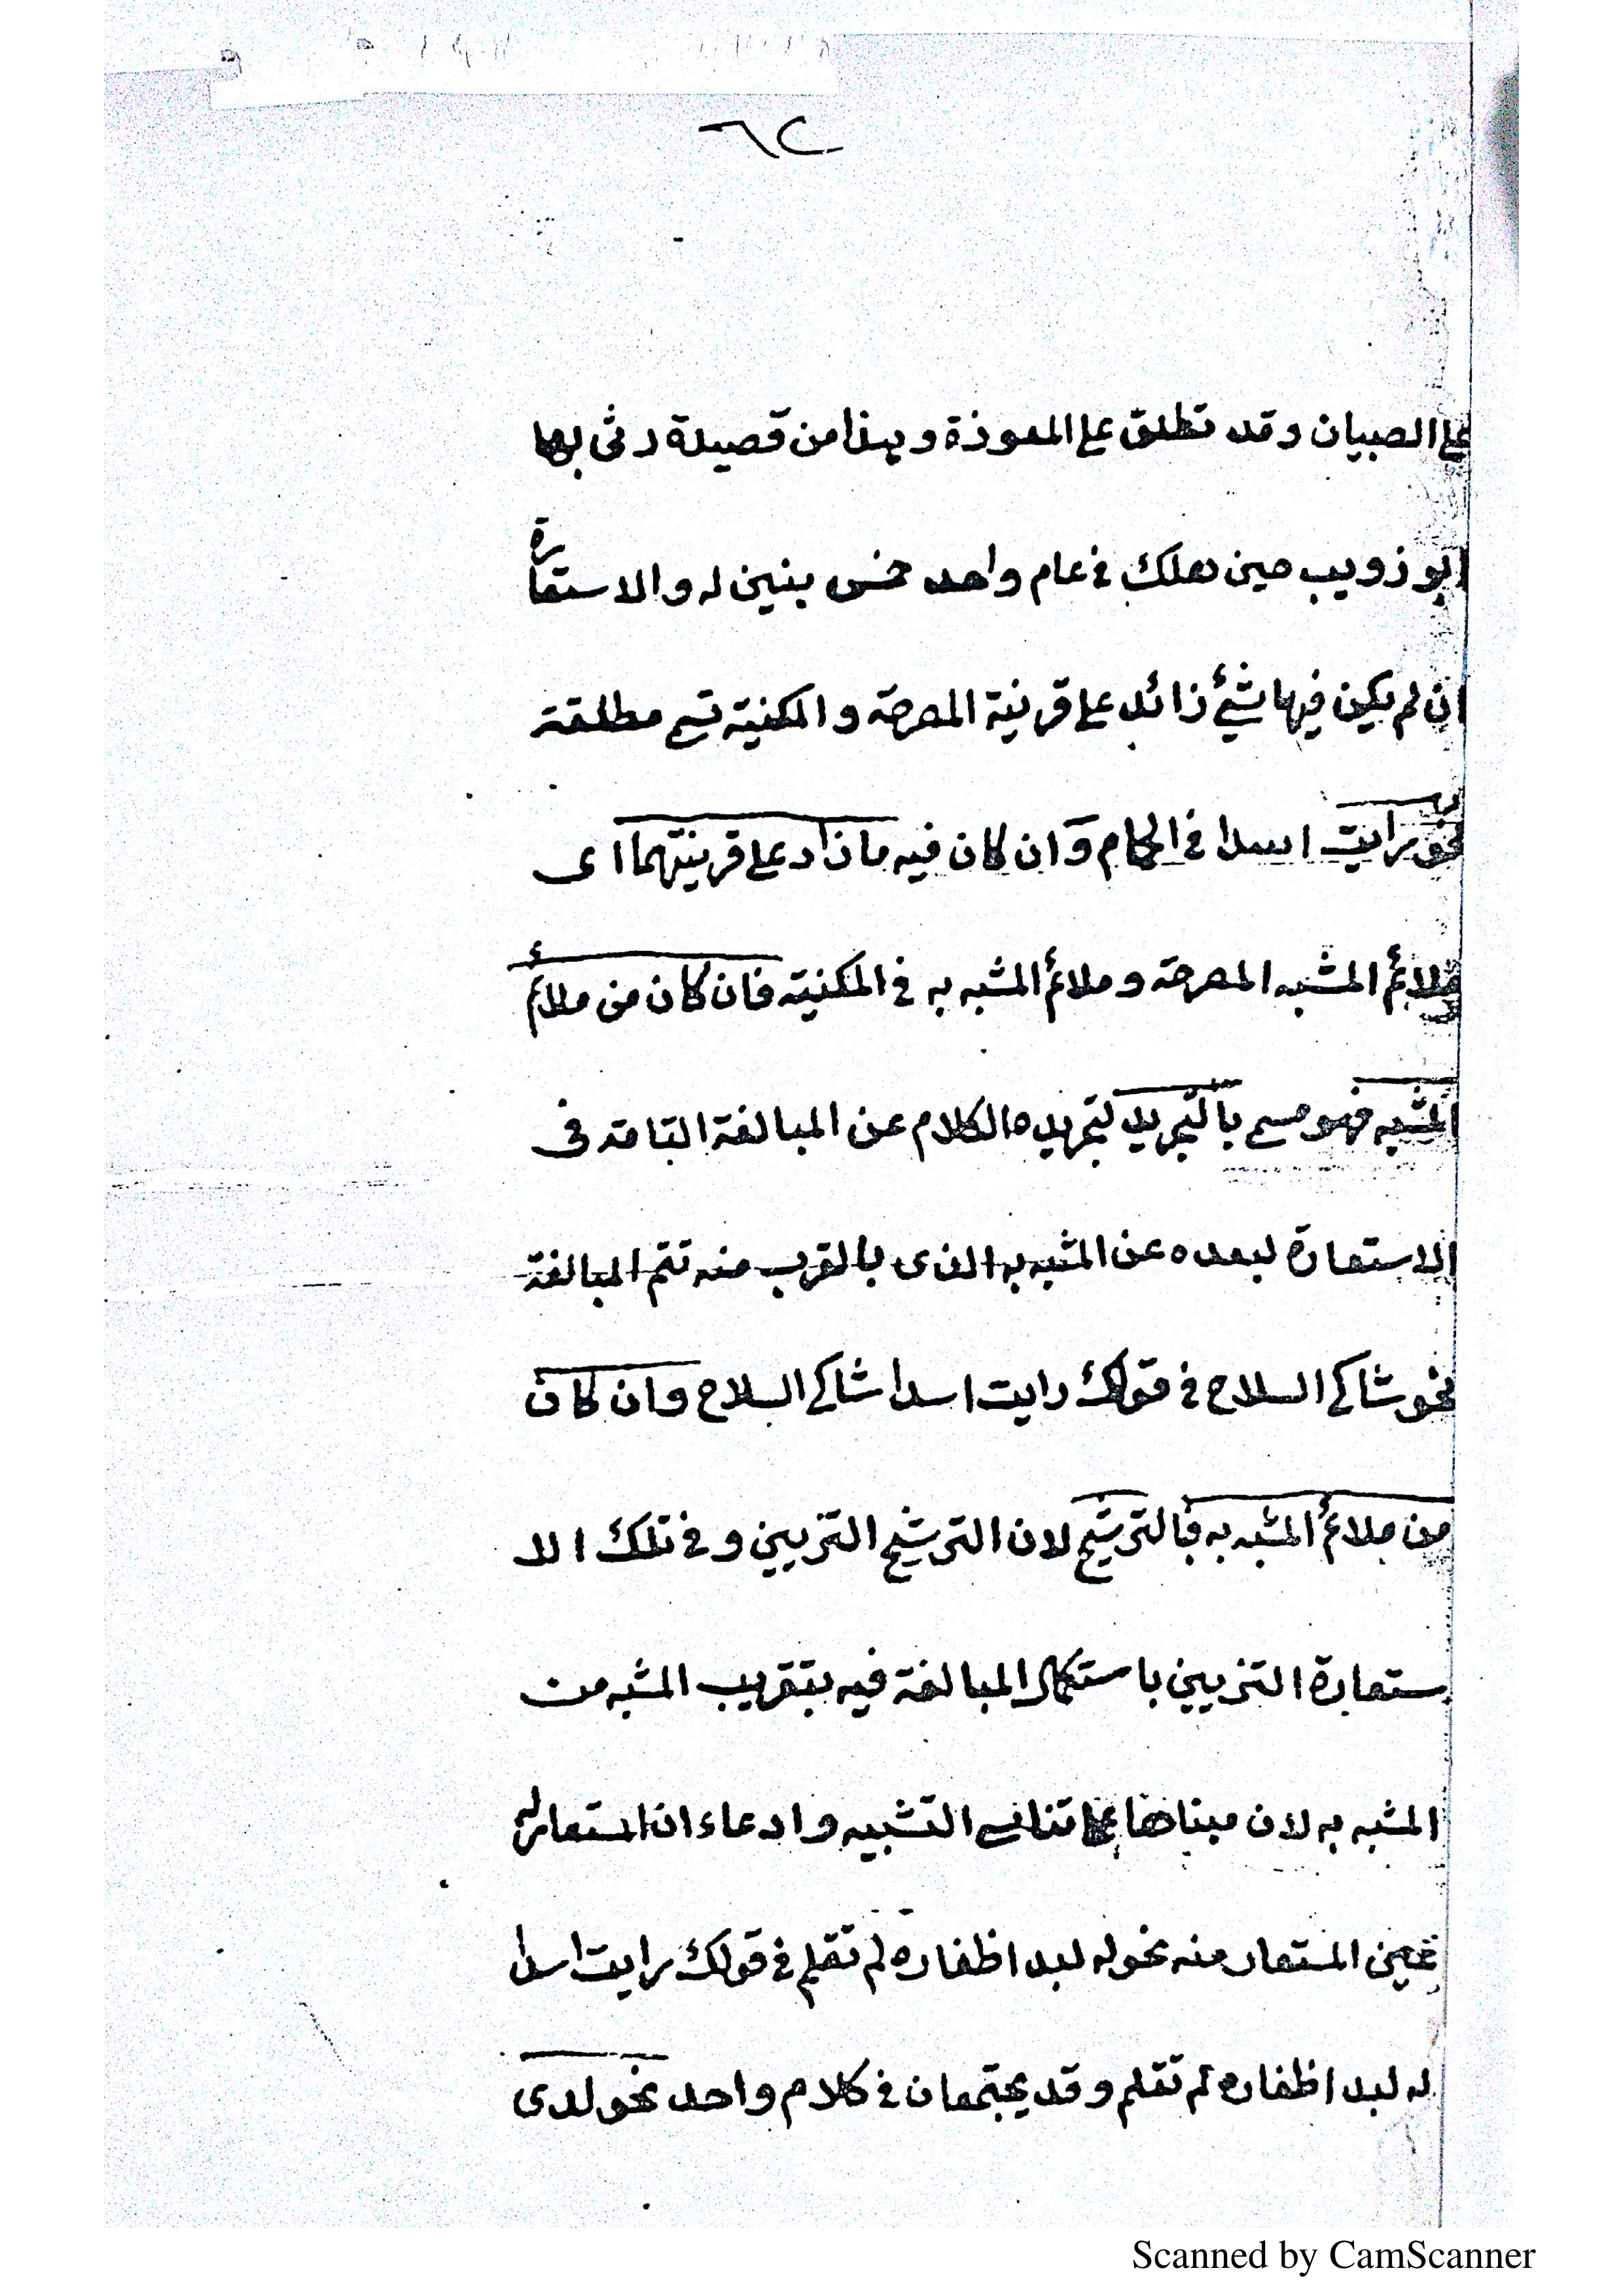 ٦٢
على الصبيان وقد تطلق على المعوذة وهذا من قصيلة رثى بها
ابو زويب حين هلك فى عام واحد خمس بنين له والاستعارة
ان لم يكن فيها شئ زائد على قرنية المصرحة والمكنية تسمى مطلقة
نحو رايت اسدا فى الحمام وان كان فيه ما زاد على قرينتهما اى
ملائم المشبه المصرحة وملائم المشبه به فى المكنية فان كان من ملائم
المشبه فهو مسمى بالتجريد لتجريده الكلام عن المبالغة التامة فى
الاستعارة لبعده عن المشبه به الذى بالقرب منه تتم المبالغة
نحو شاكى السلاح فى قولك رايت اسدا شاكى السلاح وان كان
من ملائم المشبه به فبالترشيح لان الترشيح التزيين وفى تلك الا
ستعارة التزيين باستكمال المبالغة فيه بتقريب المشبه من
المشبه به لان مبناها على تناسى التشبيه وادعاء ان المستعار له
عين المستعار منه نحو له لبد اظفاره لم تقلم فى قولك رايت اسدا
له لبد اظفاره لم تقلم وقد يجتمعان فى كلام واحد نحو لدى
Scanned by CamScanner